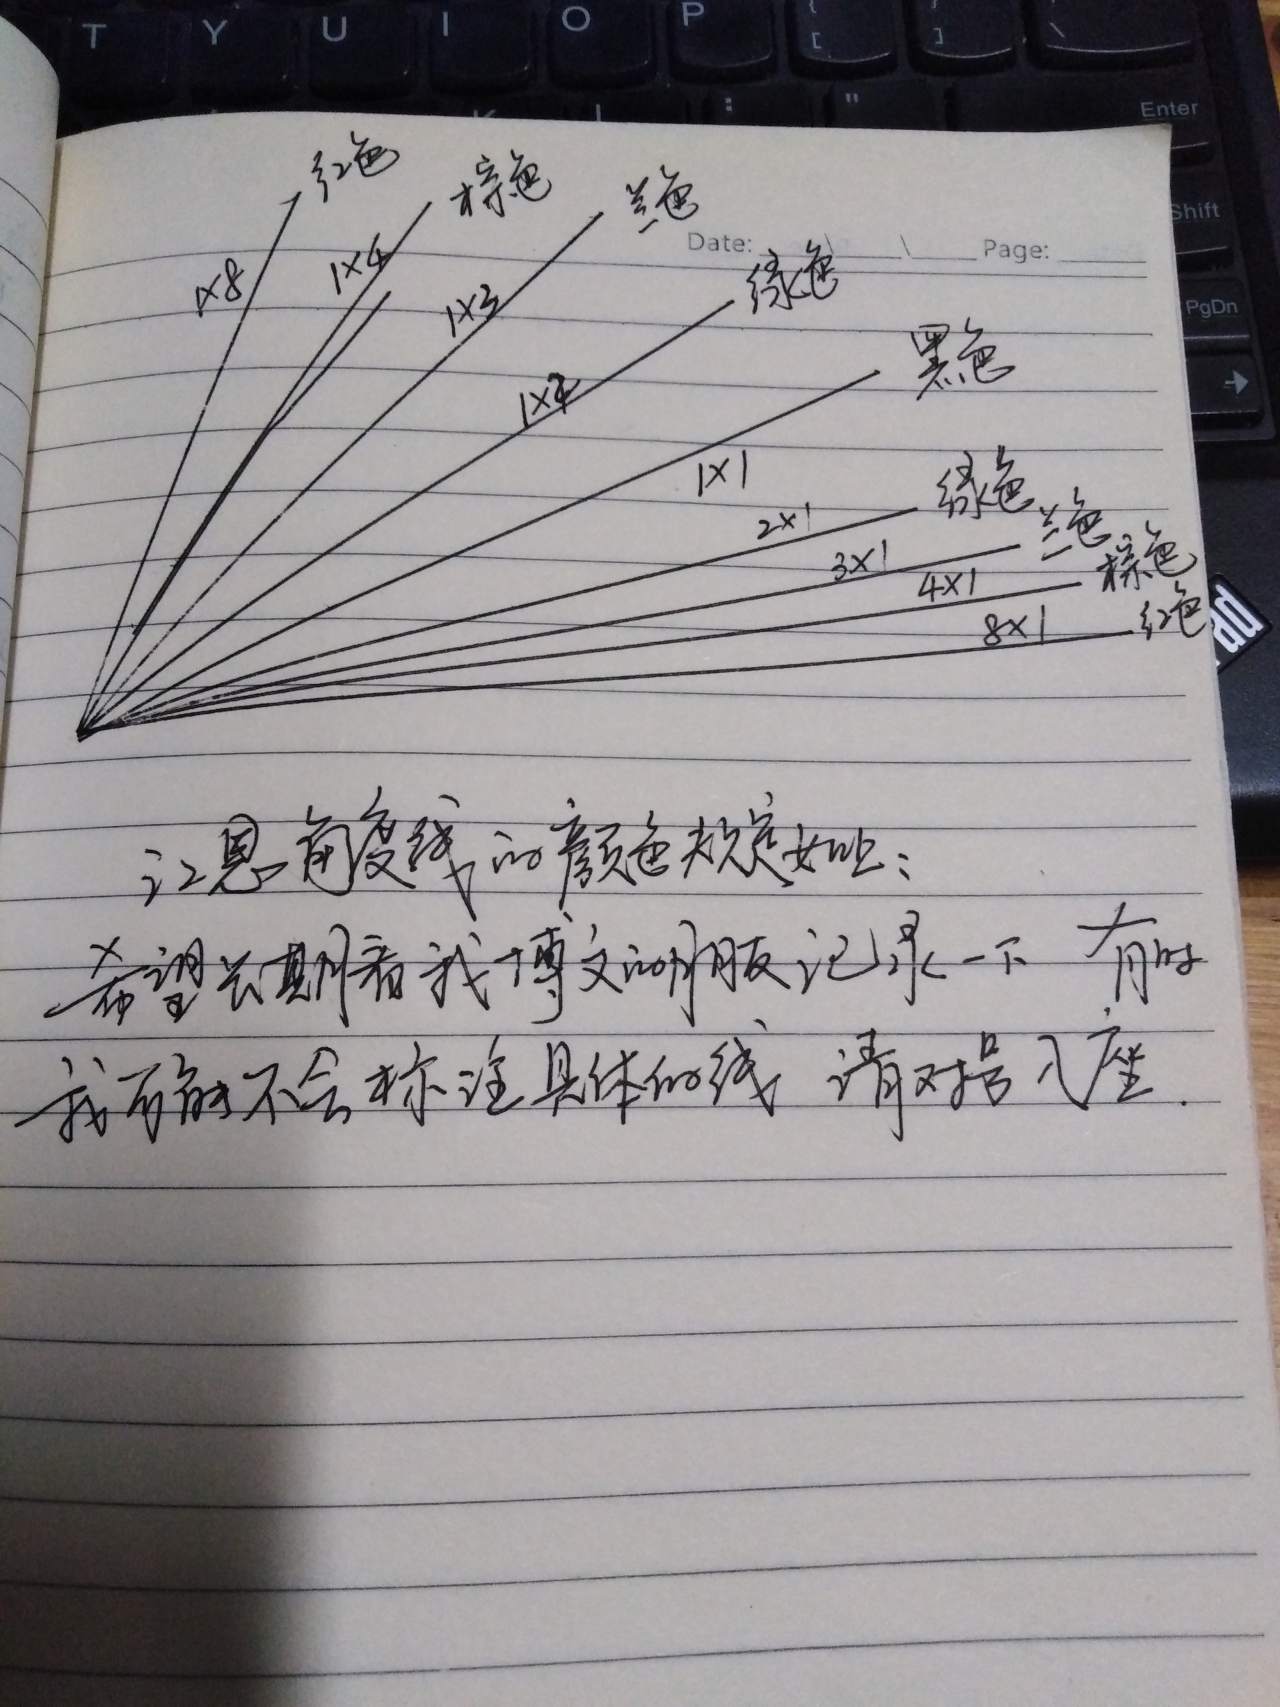 T Y U I O P { [ } ] \
K L : ; "
Enter
Shift
PgDn
红色
棕色
兰色
Date: \ \ Page:
绿色
黑色
1×8
1×4
1×3
1×2
1×1
绿色
兰色
棕色
红色
2×1
3×1
4×1
8×1
江恩角度线的颜色规定如上:
希望长期看我博文的朋友记录一下 有时
我可能不会标注具体的线 请对号入座.